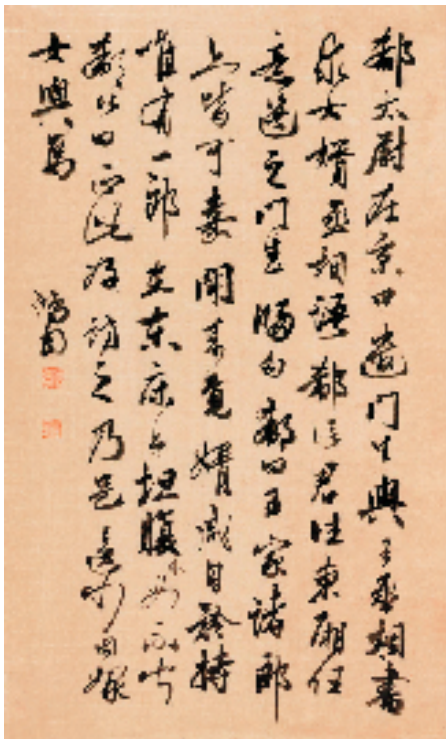 郗太尉在京口遣門生與王丞相書
求女婿丞相語郗信君往東廂任
意選之門生歸白郗曰王家諸郎
亦皆可嘉聞來覓婿咸自矜持
唯有一郎在東床上坦腹卧如不聞
郗公曰正此好訪之乃是逸少因嫁
女與焉